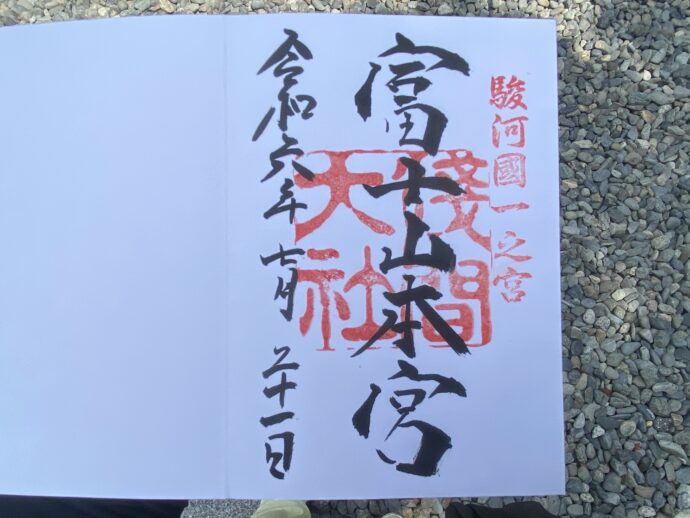 駿河國一之宮
富士山本宮
淺間大社
令和六年七月二十一日